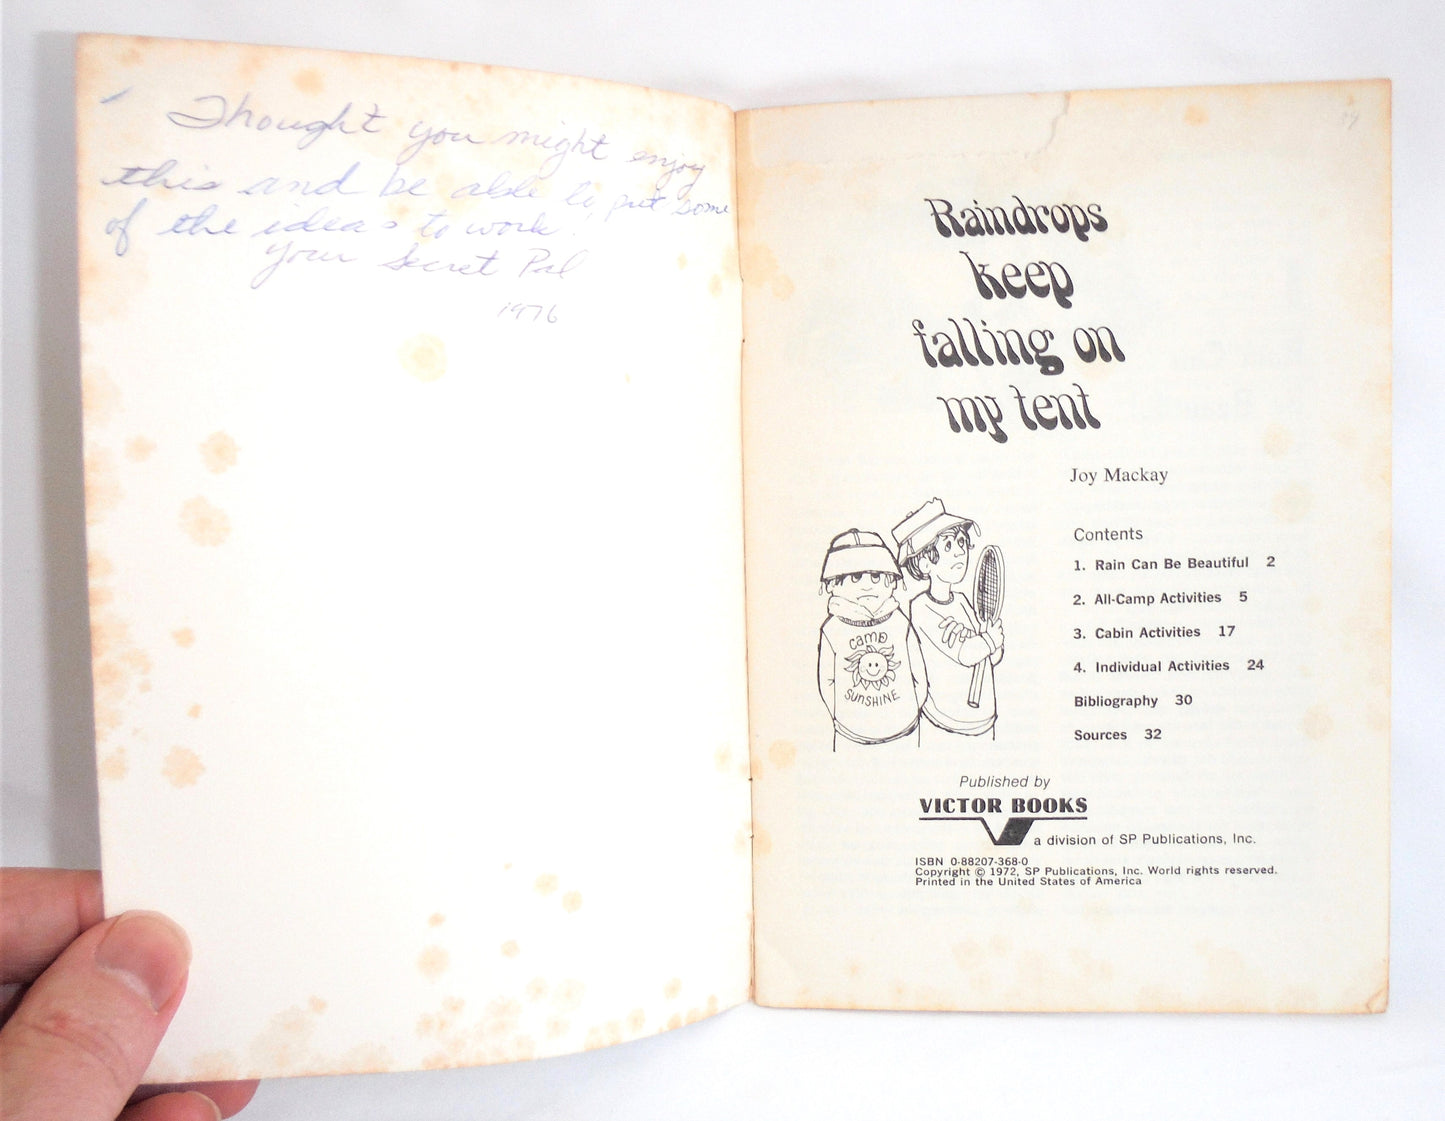 Thought you might enjoy
this and be able to put some
of the ideas to work!
Your Secret Pal
1976
Raindrops
keep
falling on
my tent
Joy Mackay
camp
SunSHINE
Contents
1. Rain Can Be Beautiful 2
2. All-Camp Activities 5
3. Cabin Activities 17
4. Individual Activities 24
Bibliography 30
Sources 32
Published by
VICTOR BOOKS
a division of SP Publications, Inc.
ISBN 0-88207-368-0
Copyright © 1972, SP Publications, Inc. World rights reserved.
Printed in the United States of America